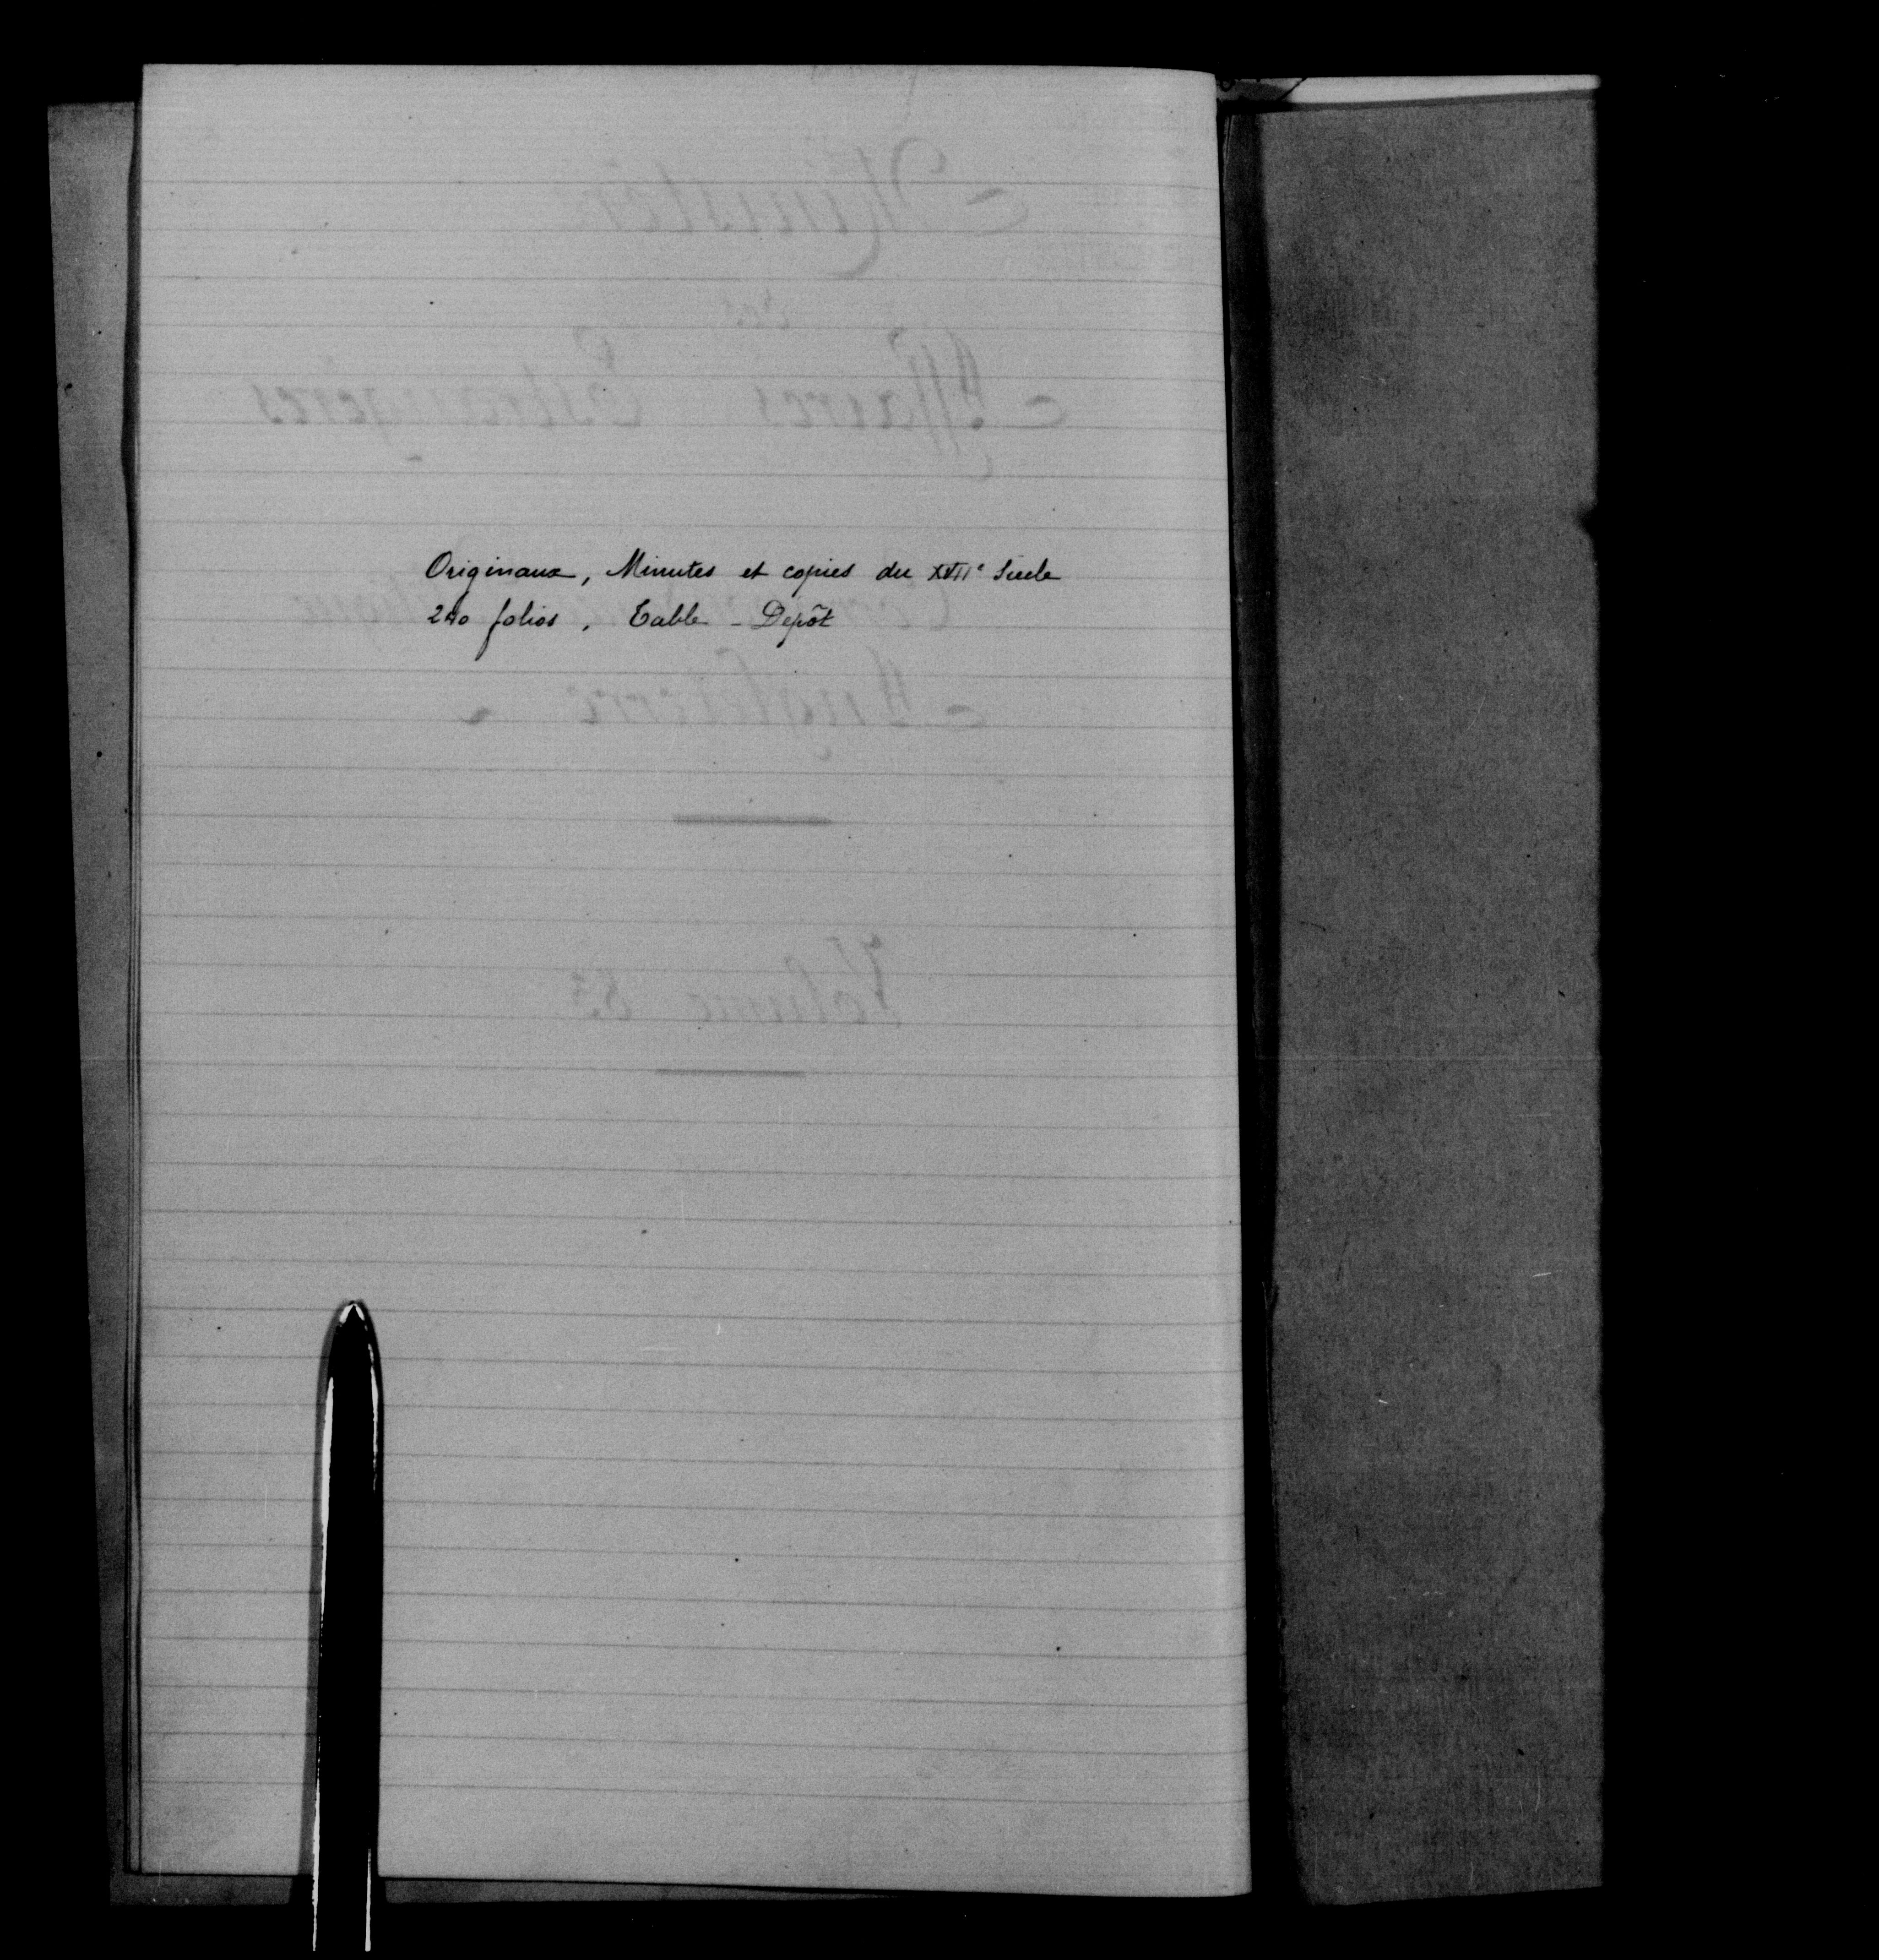 Originaux, Minutes et copies du XVIIe Siècle
folios, Table - Depôt